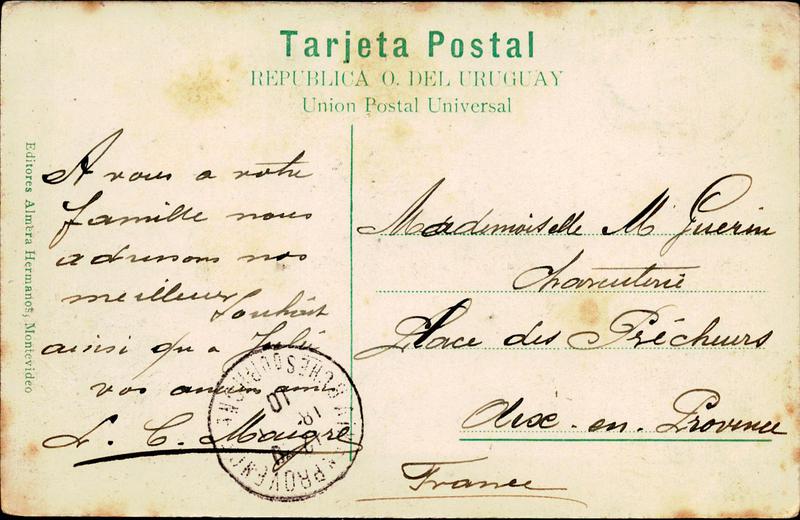 Tarjeta Postal
REPUBLICA O. DEL URUGUAY
Union Postal Universal
Editores Almera Hermanos, Montevideo
A vous a votre
famille nous
adressons nos
meilleur Souhait
ainsi qu a Julie
vos anciens amis
L. C. Maigre
Mademoiselle M Guerin
Charcuterie
Place des Précheurs
Aix-en-Provence
France
AIX-EN-PROVENCE
BCHES DU RHONE
10